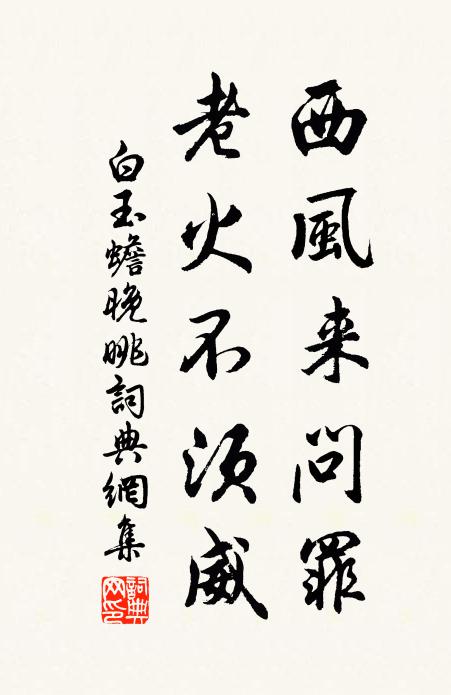 西風来問罪
老火不須威
白玉蟾晚眺詞典網集
詞典网印